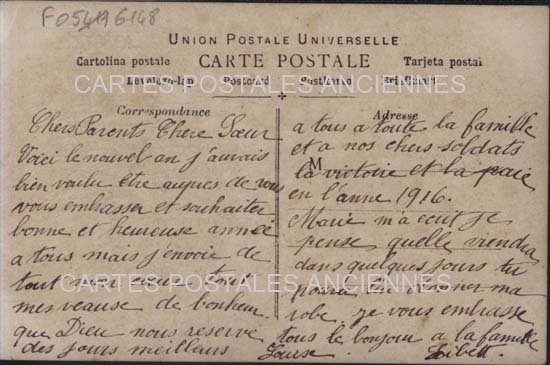 F054196148
UNION POSTALE UNIVERSELLE
Cartolina postale CARTE POSTALE Tarjeta postal
Levelezo-lap Postcard Postkarte Briefkaart
CARTES POSTALES ANCIENNES
Correspondance
Chers Parents Chere Sœur
Voici le nouvel an j'aurais
bien voulu etre aupres de vous
vous embrasser et souhaiter
bonne et heureuse année
a tous mais j'envoie de
tout mon coeur tout
mes veause de bonheur
que Dieu nous reserve
des jours meilleurs
Louise
Adresse
M
a tous a toute la famille
et a nos chers soldats
la victoire et la paie
en l'anne 1916.
Marie m'a ecrit je
pense quelle viendra
dans quelques jours tu
pourra lui donner ma
robe. je vous embrasse
tous le bonjour a la famille
CARTES POSTALES ANCIENNES